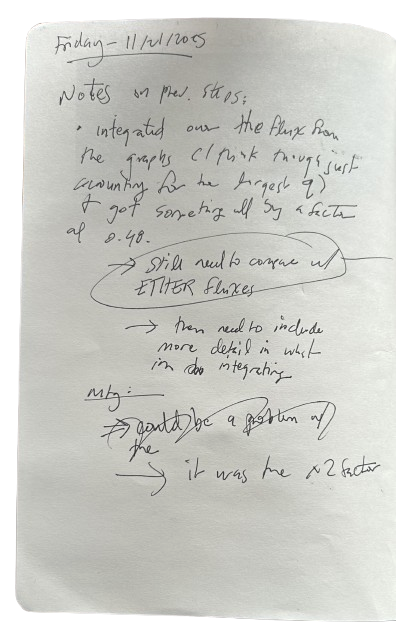 Friday - 11/21/2025
Notes on prev. steps:
• integrated over the flux from
the graphs (I think though just
accounting for the largest q)
& got something off by a factor
of 0.48.
→ Still need to compare w/
ETHER fluxes
→ then need to include
more detail in what
im integrating
Mtg:
→ could be a problem w/
the
→ it was the ~2 factor